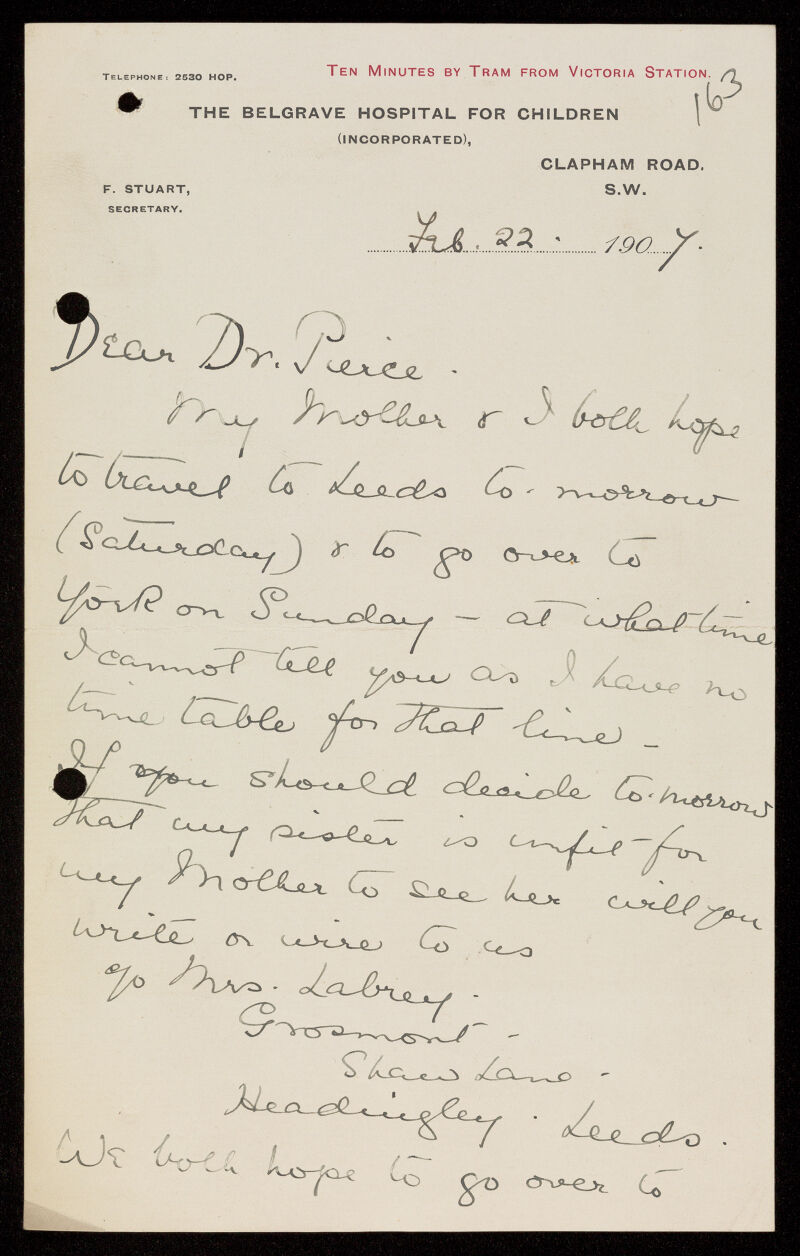 TELEPHONE: 2530 HOP.
TEN MINUTES BY TRAM FROM VICTORIA STATION.
163
THE BELGRAVE HOSPITAL FOR CHILDREN
(INCORPORATED),
CLAPHAM ROAD.
F. STUART,
S.W.
SECRETARY.
Feb. 22. 1907.
Dear Dr. Pierce.
My Mother & I both hope
to travel to Leeds to-morrow
(Saturday) & to go over to
York on Sunday - at what time
I cannot tell you as I have no
time table for that line -
If you should decide to-morrow
that my sister is unfit for
my Mother to see her will you
write or wire to us
c/o Mrs. Labrey.
Grosmont -
Shaw Lane -
Headingley. Leeds.
We both hope to go over to